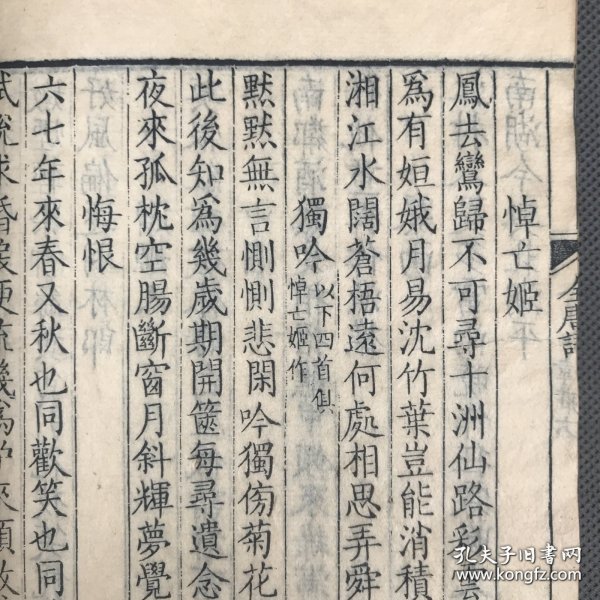 悼亡姬
鳳去鸞歸不可尋十洲仙路彩雲
爲有姮娥月易沈竹葉豈能消積
湘江水闊蒼梧遠何處相思弄舜
獨吟以下四首俱悼亡姬作
默默無言惻惻悲閑吟獨傍菊花
此後知爲幾歲期開篋每尋遺念
夜來孤枕空腸斷窗月斜輝夢覺
悔恨
六七年來春又秋也同歡笑也同
全唐詩
孔夫子旧书网
www.kongfz.com